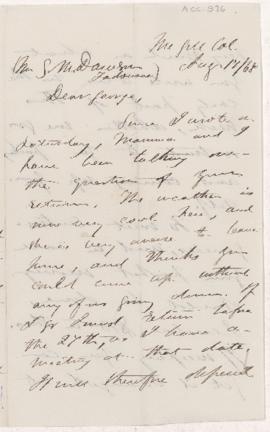 ACC. 976
McGill Col.
Aug 17/68
(Mr G M Dawson
Tadousac)
Dear George,
Since I wrote on
Saturday, Mamma and I
have been talking over
the question of your
return. The weather is
now very cool here, and
she is very averse to leave
home, and thinks you
could come up without
any of us going down. If
I go I must return before
the 27th, as I have a
meeting at that date.
It will therefore depend